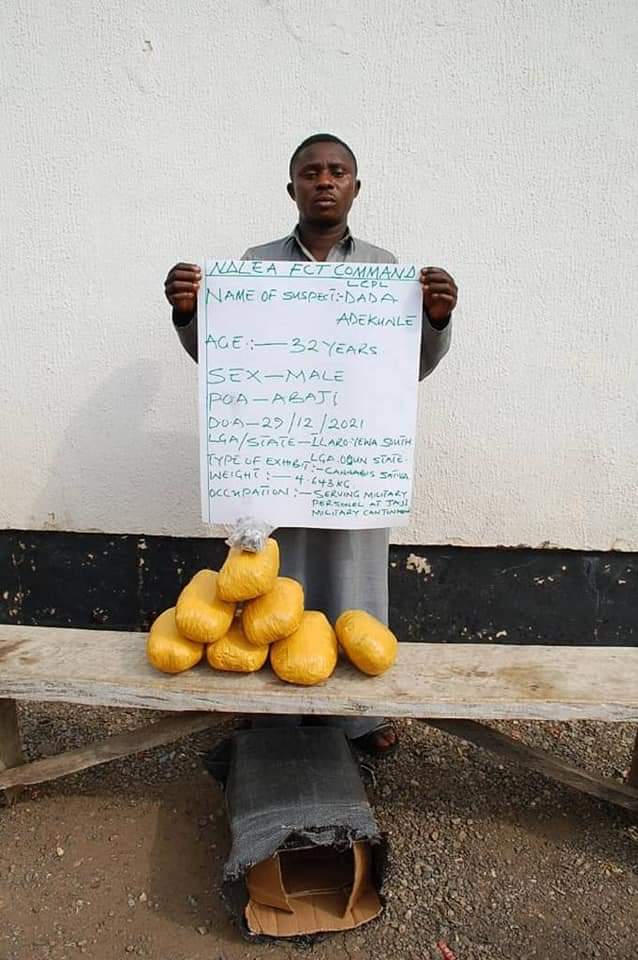 NDLEA FCT COMMAND
LCPL
NAME OF SUSPECT:-DADA
ADEKUNLE
AGE:— 32 YEARS
SEX—MALE
POA—ABAJI
DOA—29/12/2021
LGA/STATE—ILLARO:YEWA SOUTH
LGA. OGUN STATE.
TYPE OF EXHIBIT:—CANNABIS SATIVA
WEIGHT:— 4.643KG
OCCUPATION:—SERVING MILITARY
PERSONEL AT JAJI
MILITARY CANTONMENT